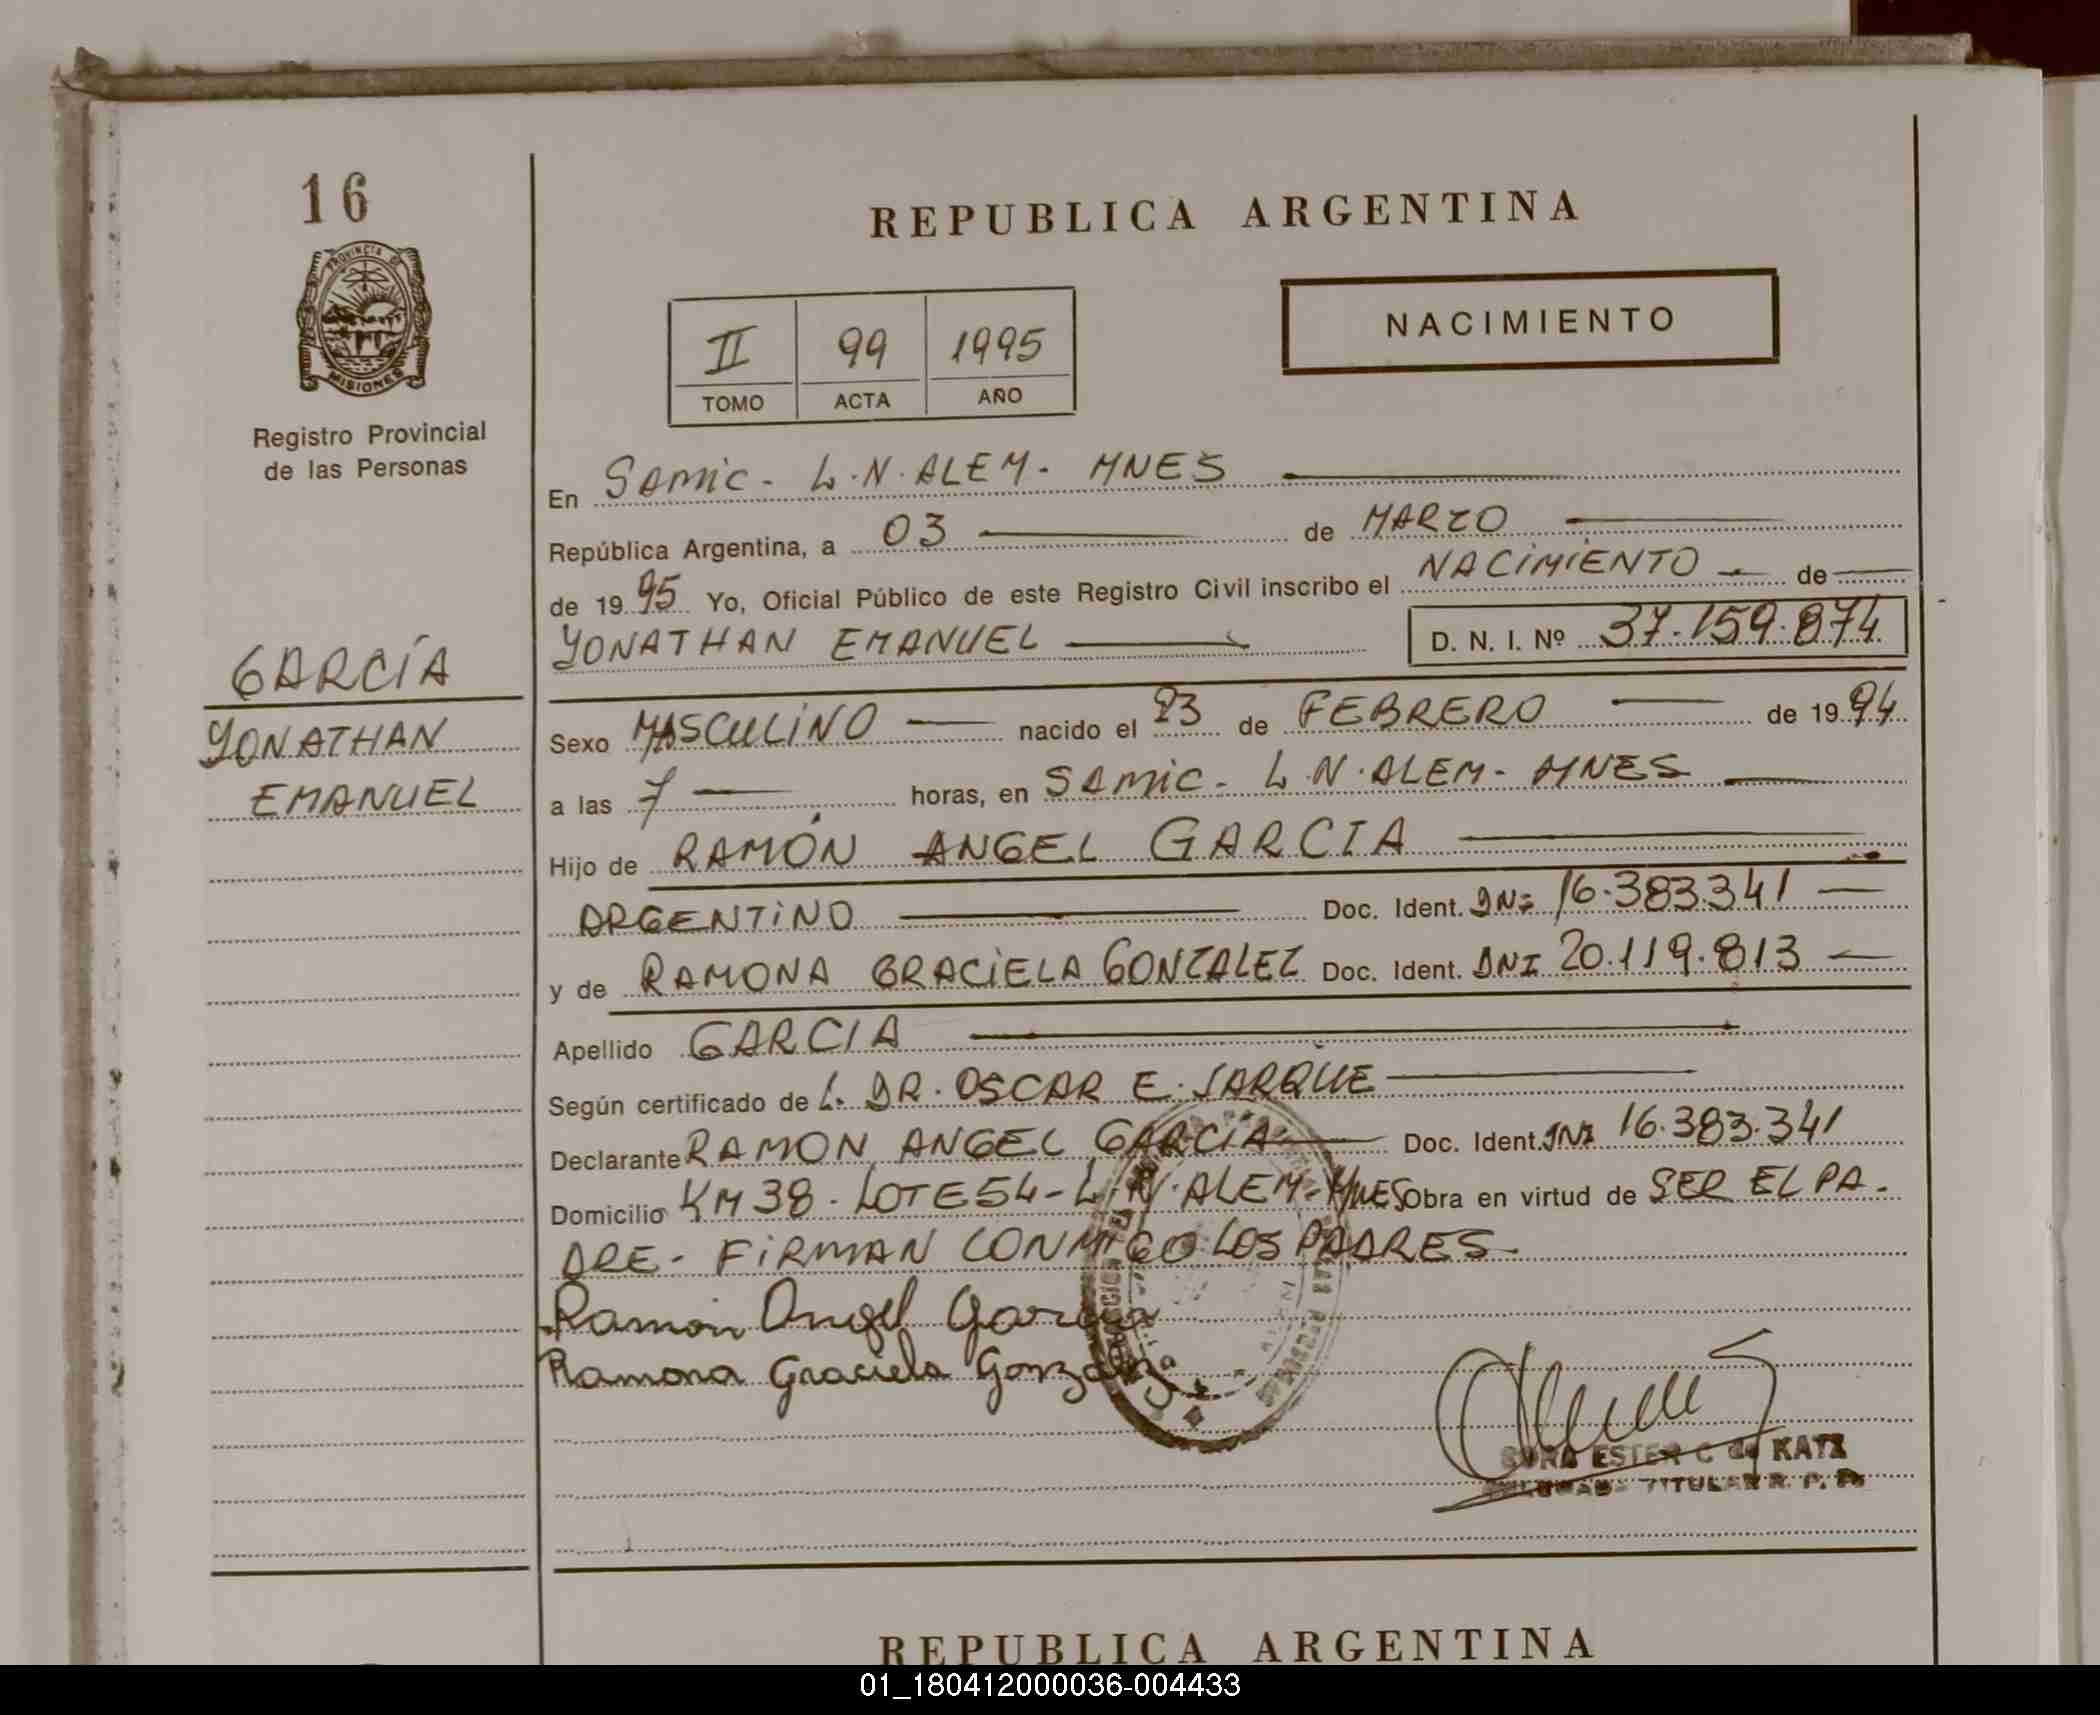 16
PROVINCIA DE
MISIONES
Registro Provincial
de las Personas
REPUBLICA ARGENTINA
II 99 1995
TOMO ACTA AÑO
NACIMIENTO
En SAMIC - L.N. ALEM - MNES
República Argentina, a 03 de MARZO
de 19 95 Yo, Oficial Público de este Registro Civil inscribo el NACIMIENTO de
YONATHAN EMANUEL D. N. I. Nº 37.159.874
GARCÍA
YONATHAN
EMANUEL
Sexo MASCULINO nacido el 23 de FEBRERO de 19 94
a las 7 horas, en SAMIC - L.N. ALEM - MNES
Hijo de RAMÓN ANGEL GARCIA
ARGENTINO Doc. Ident. DNI 16.383.341
y de RAMONA GRACIELA GONZALEZ Doc. Ident. DNI 20.119.813
Apellido GARCIA
Según certificado de L. DR. OSCAR E. JARQUE
Declarante RAMON ANGEL GARCIA Doc. Ident. DNI 16.383.341
Domicilio KM 38 - LOTE 54 - L.N. ALEM - MNES Obra en virtud de SER EL PA-
DRE - FIRMAN CONMIGO LOS PADRES -
Ramón Angel Garcia
Ramona Graciela Gonzalez
ESTER C de KATZ
TITULAR R. P. P.
REPUBLICA ARGENTINA
01_180412000036-004433